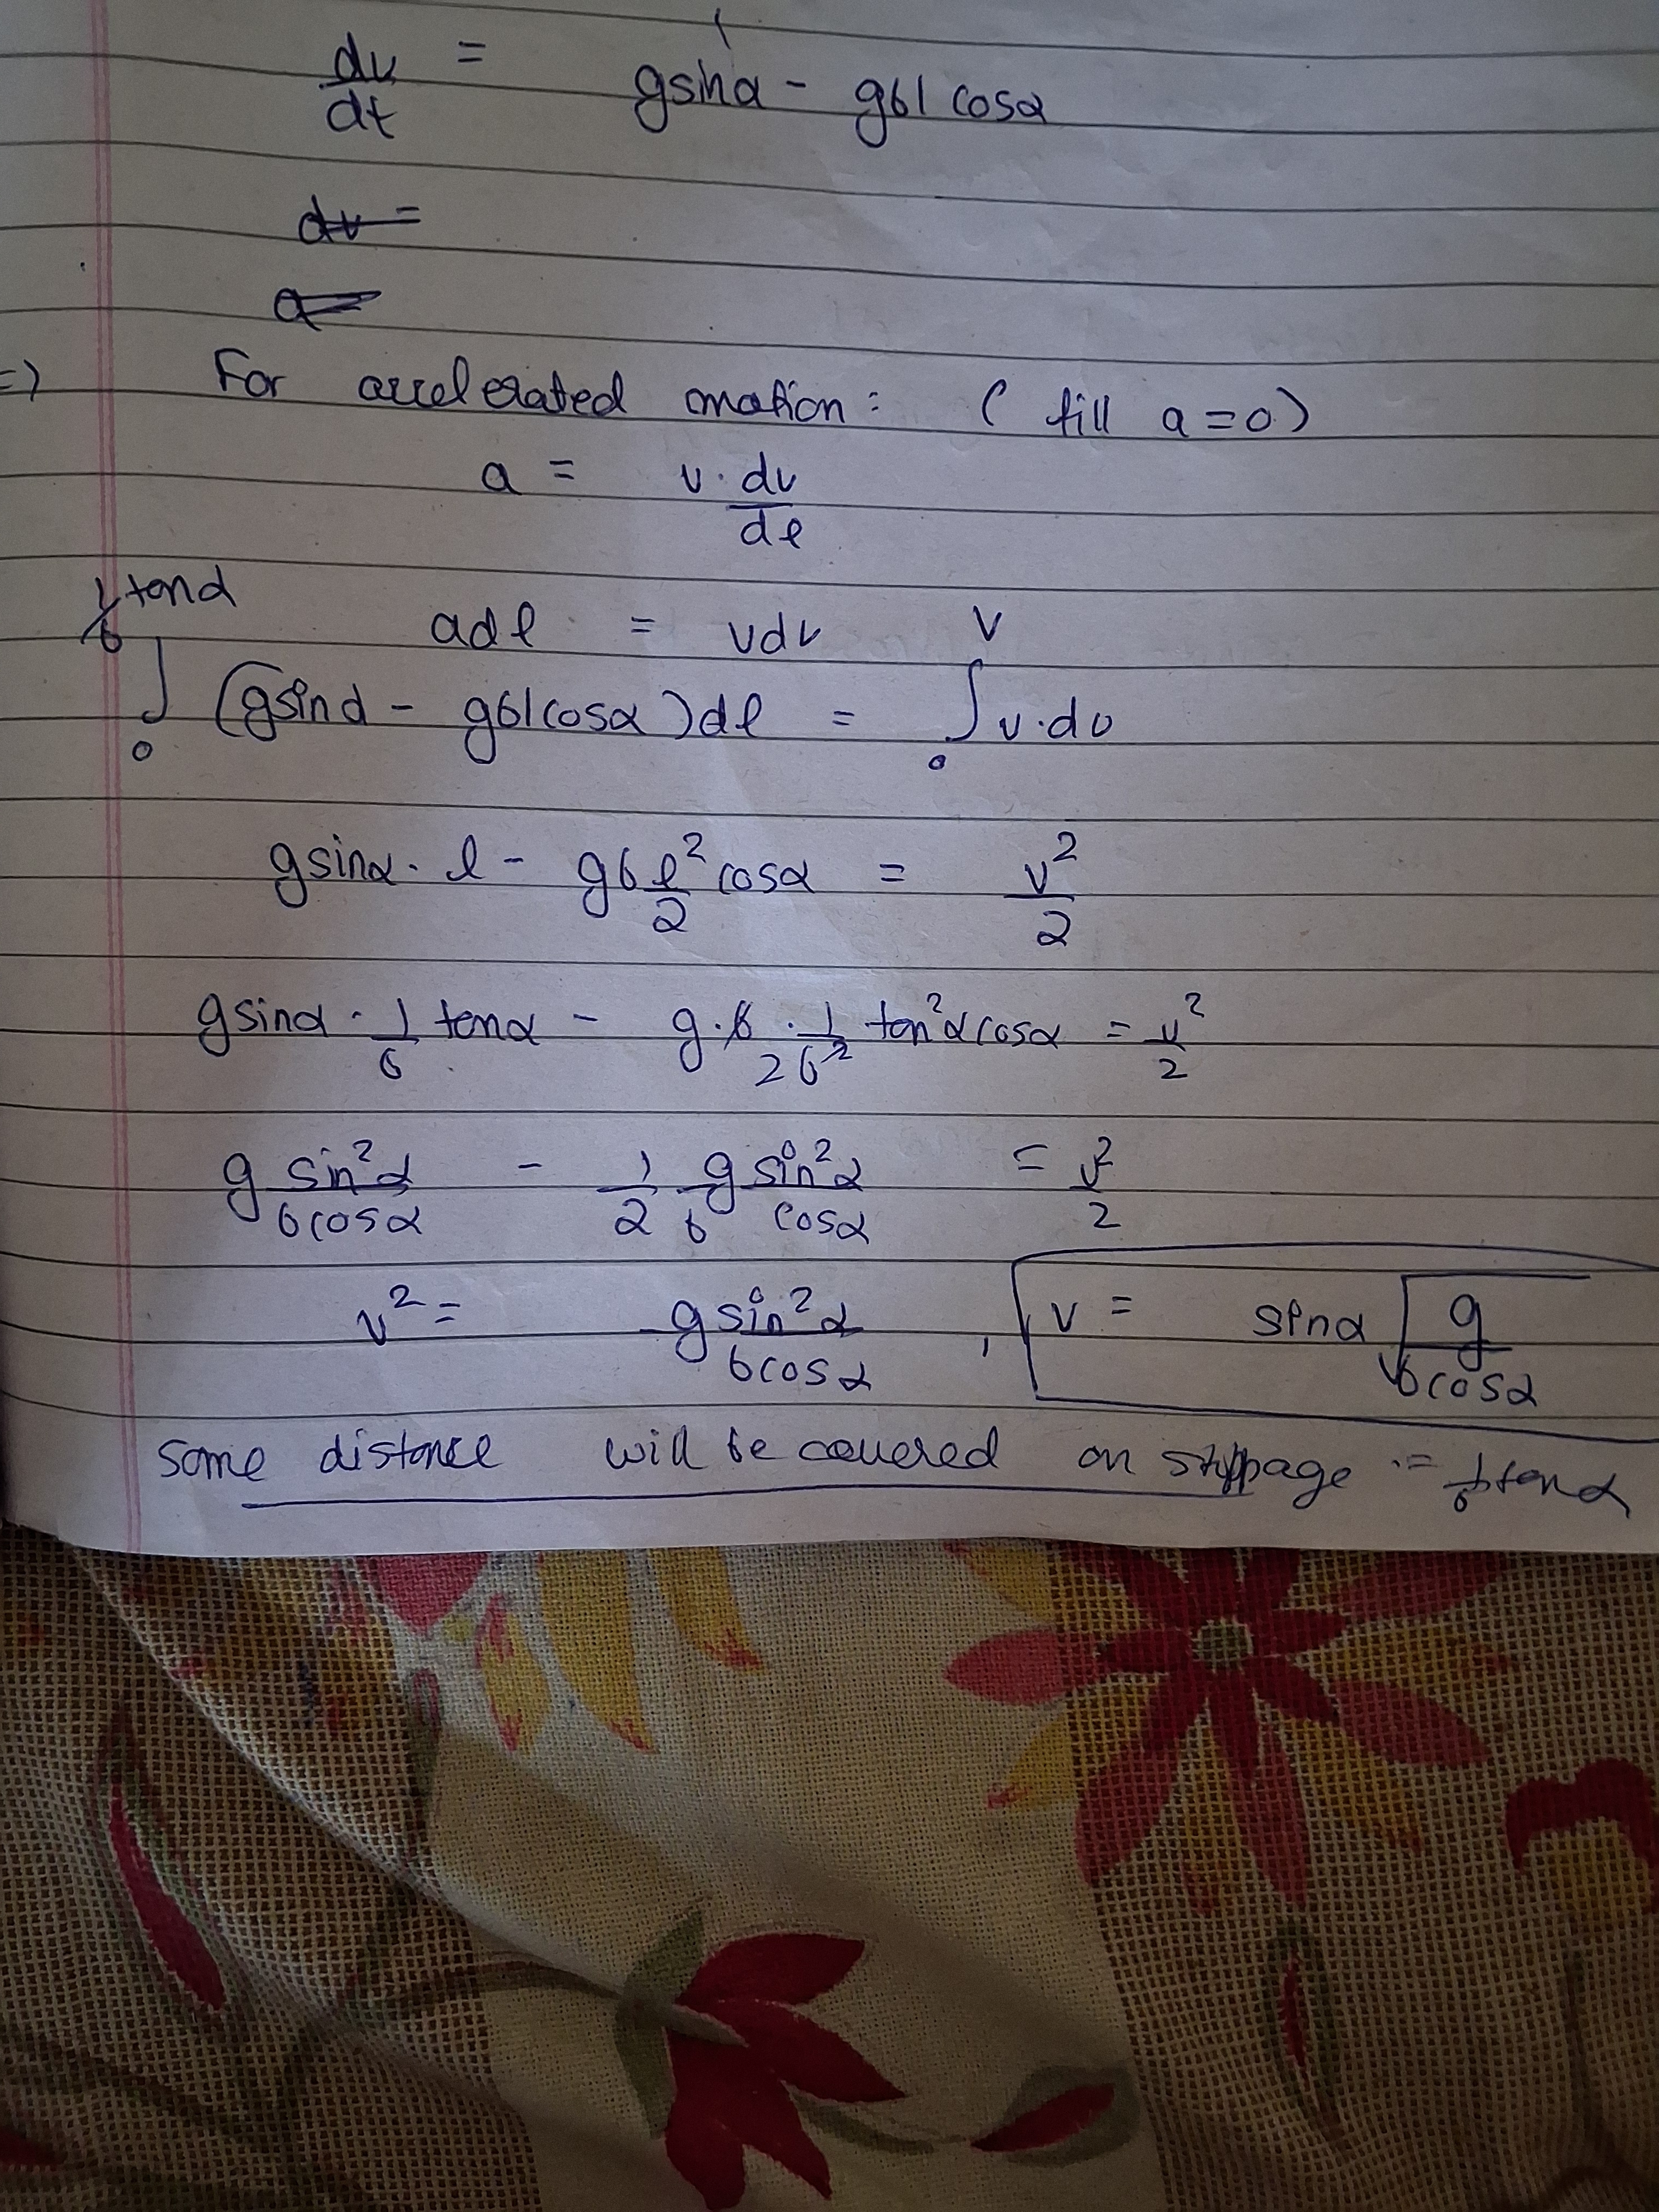 du/dt = gsinα - gbl cosα
dv =
a =
=) For accelerated motion: ( till a=0)
a = v. dv/dl
adl = vdv
∫₀^(1/b tanα) (gsinα - gblcosα)dl = ∫₀^v v.dv
gsinα. l - gb l²/2 cosα = v²/2
gsinα . 1/b tanα - g.b . 1/2b² tan²α cosα = v²/2
g sin²α/bcosα - 1/2 g/b sin²α/cosα = v²/2
v² = g sin²α/bcosα , v = sinα √(g/bcosα)
some distance will be covered on stoppage := 1/b tanα